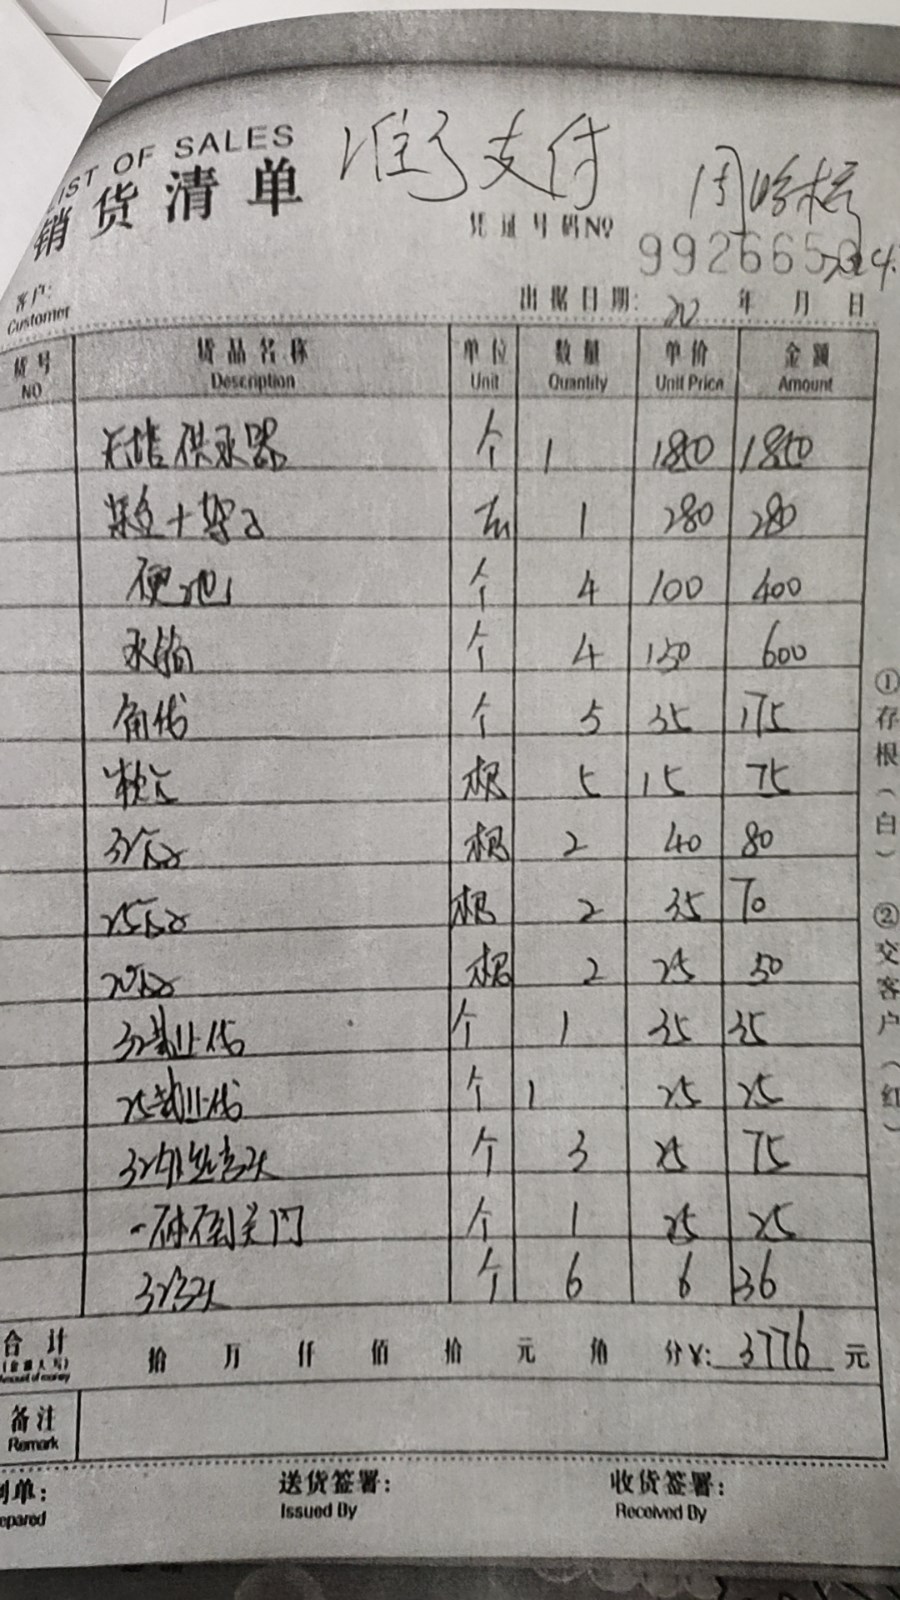 LIST OF SALES
销货清单 准予支付
凭证号码NO 周
992665
客户:
Customer
出据日期: 20 年 月 日
货号 货品名称 单位 数量 单价 金额
NO Description Unit Quantity Unit Price Amount
无塔供水器 个 1 1850 1850
1 280 280
便池 个 4 100 400
水箱 个 4 150 600
角伐 个 5 35 175
根 5 15 75
32 根 2 40 80
25 根 2 35 70
20 根 2 25 50
32截止伐 个 1 35 35
25截止伐 个 1 25 25
32外丝直接 个 3 25 75
个 1 25 25
32 个 6 6 36
合计 拾 万 仟 佰 拾 元 角 分¥: 3776 元
(金额大写)
Amount of money
备注
Remark
制单: 送货签署: 收货签署:
Prepared Issued By Received By
①存根(白) ②交客户(红)